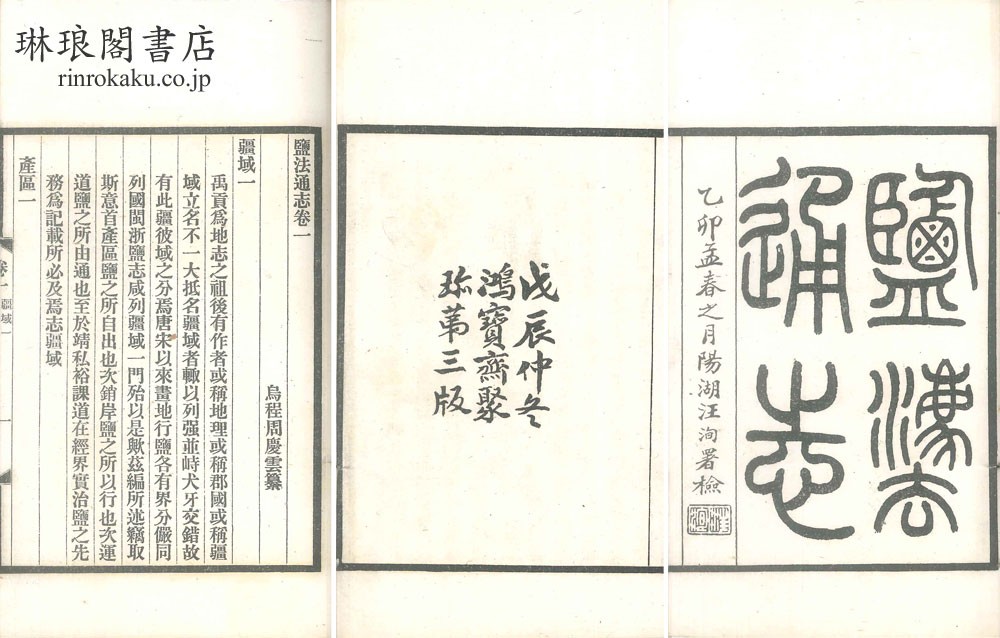 琳琅閣書店
rinrokaku.co.jp
鹽法
通志
乙卯孟春之月陽湖汪洵署檢
戊辰仲冬
鴻寶齋聚
珍苐三版
鹽法通志卷一
烏程周慶雲纂
疆域一
禹貢爲地志之祖後有作者或稱地理或稱郡國或稱疆
域立名不一大抵名疆域者輙以列强並峙犬牙交錯故
有此疆彼域之分焉唐宋以來畫地行鹽各有界分儼同
列國閩浙鹽志咸列疆域一門殆以是歟茲編所述竊取
斯意首產區鹽之所自出也次銷岸鹽之所以行也次運
道鹽之所由通也至於靖私裕課道在經界實治鹽之先
務爲記載所必及焉志疆域
產區一
卷一
疆域一
一